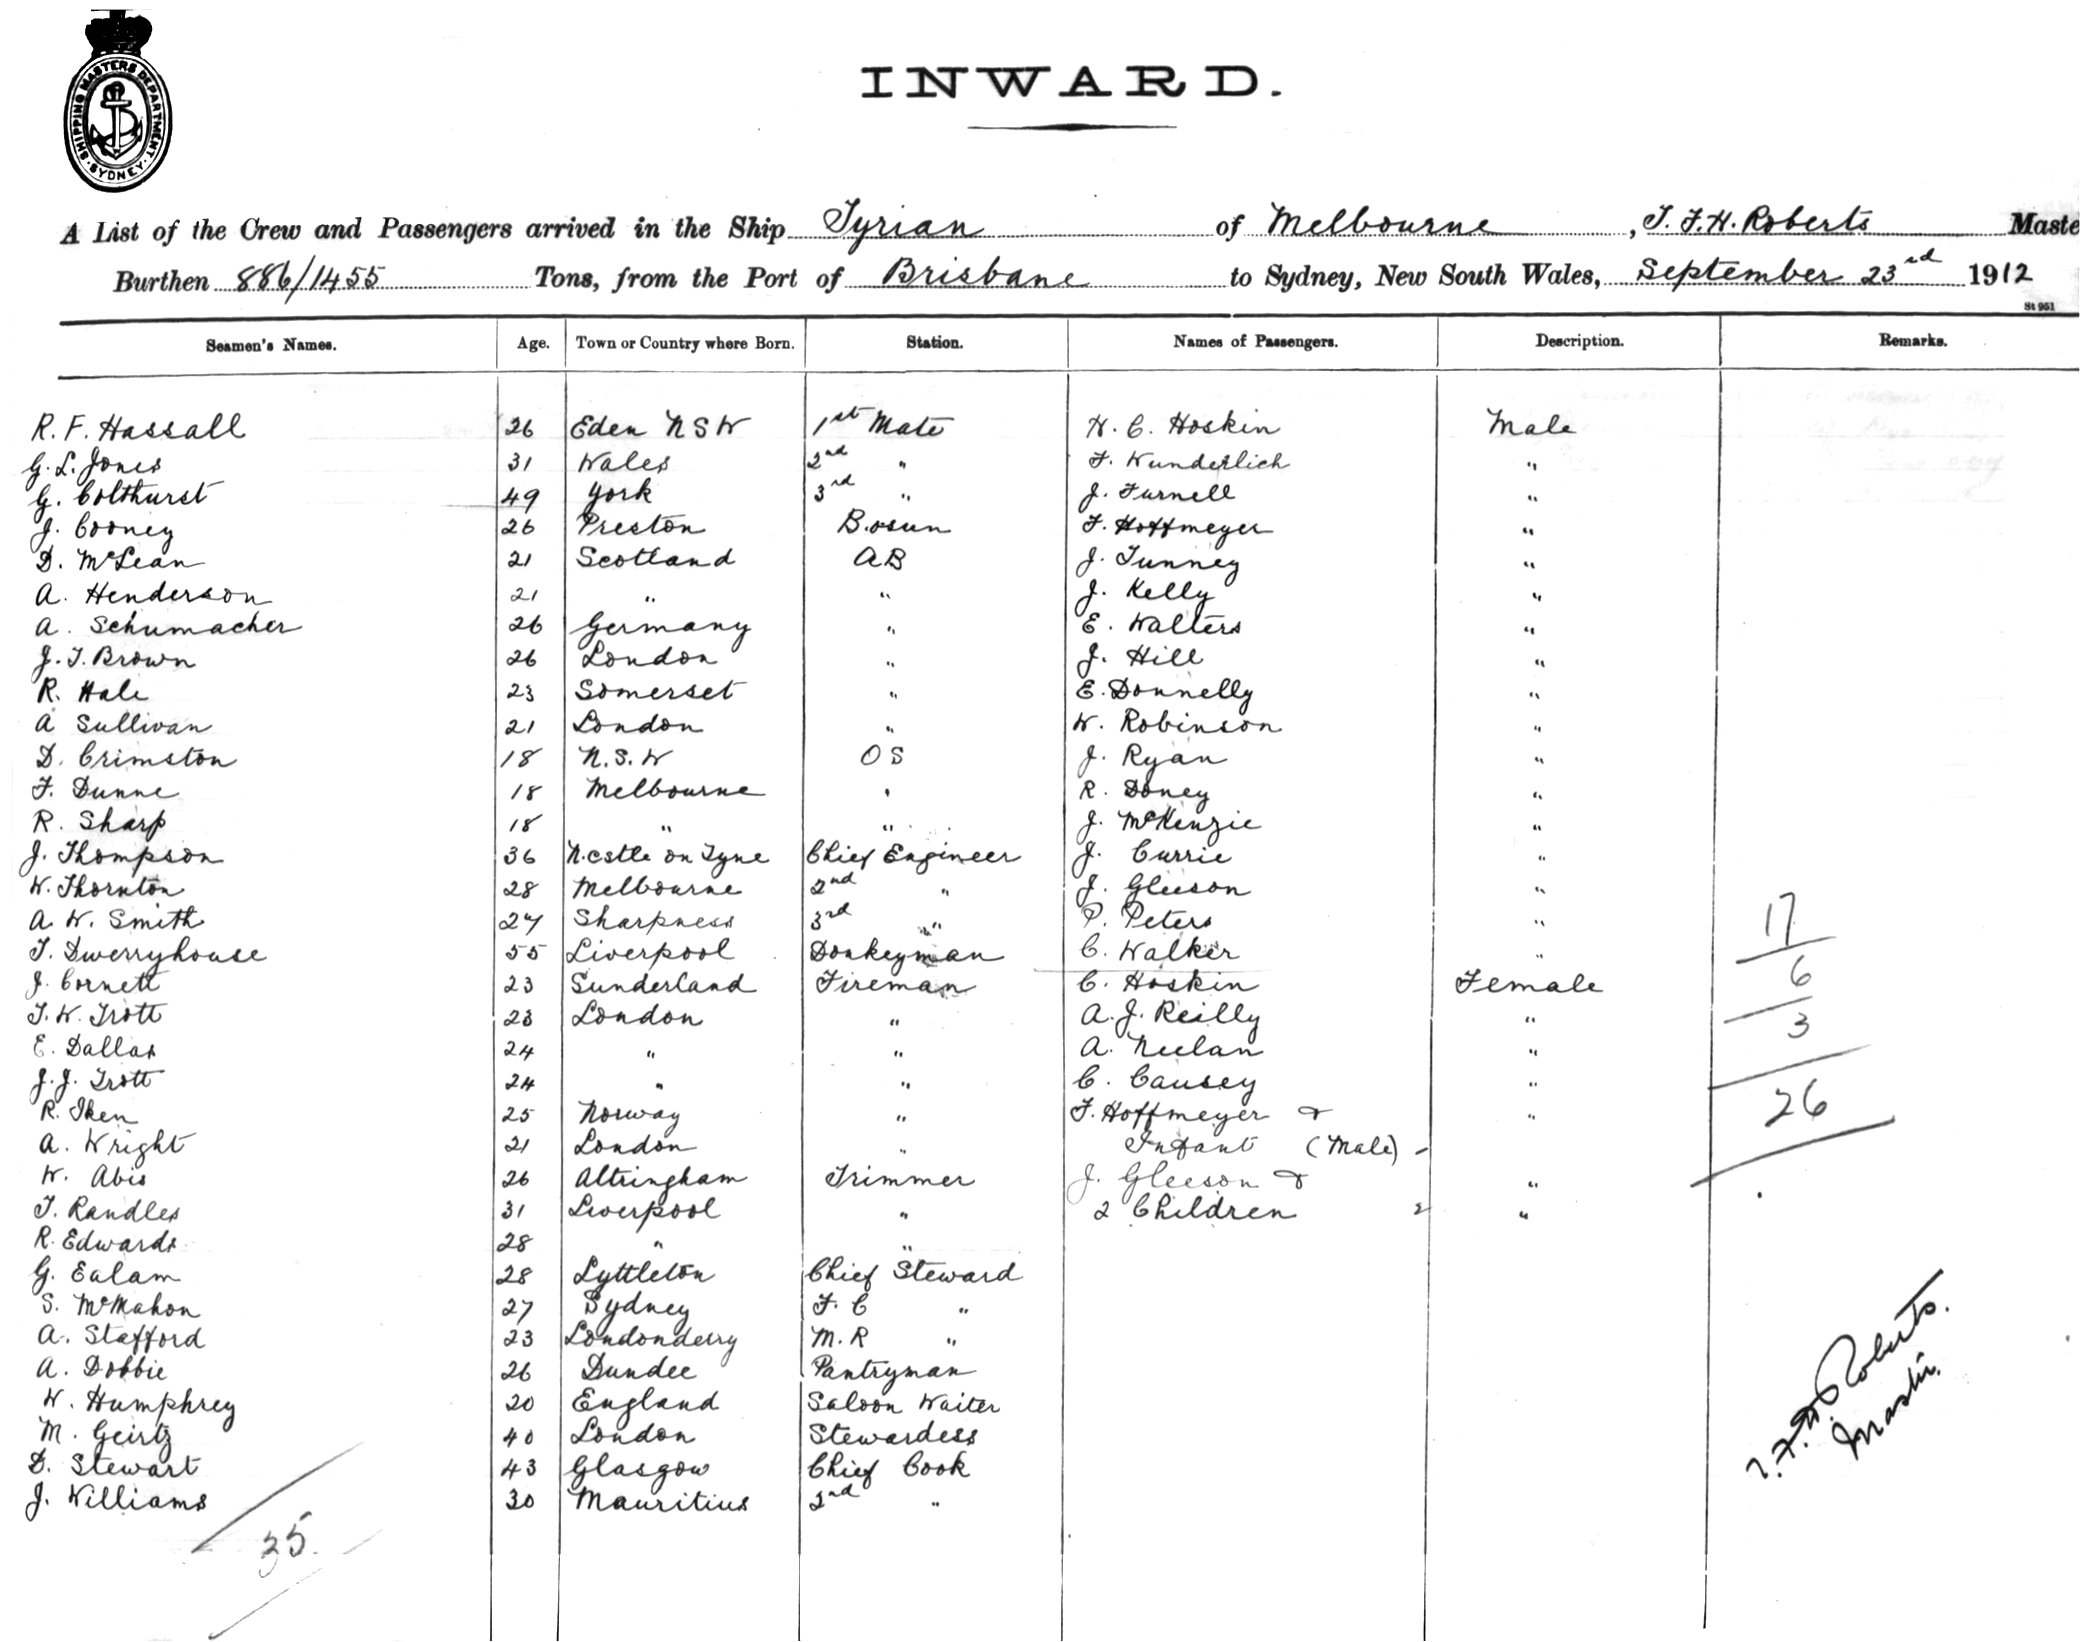 SHIPPING MASTERS DEPARTMENT. SYDNEY.
INWARD.
A List of the Crew and Passengers arrived in the Ship Tyrian of Melbourne, T. F. H. Roberts Maste
Burthen 886/1455 Tons, from the Port of Brisbane to Sydney, New South Wales, September 23rd 1912
St 951
Seamen's Names. Age. Town or Country where Born. Station. Names of Passengers. Description. Remarks.
R. F. Hassall 26 Eden N S W 1st Mate H. C. Hoskin Male
G. L. Jones 31 Wales 2nd " F. Wunderlich "
G. Colthurst 49 York 3rd " J. Furnell "
J. Cooney 26 Preston Bosun F. Hoffmeyer "
D. McLean 21 Scotland AB J. Tunney "
A. Henderson 21 " " J. Kelly "
A. Schumacher 26 Germany " E. Walters "
J. T. Brown 26 London " J. Hill "
R. Hale 23 Somerset " E. Donnelly "
A Sullivan 21 London " W. Robinson "
D. Crimston 18 N.S.W OS J. Ryan "
F. Dunne 18 Melbourne " R. Doney "
R. Sharp 18 " " J. McKenzie "
J. Thompson 36 N.cstle on Tyne Chief Engineer J. Currie "
W. Thornton 28 Melbourne 2nd " J. Gleeson "
A. W. Smith 27 Sharpness 3rd " P. Peters " 17
T. Dwerryhouse 55 Liverpool Donkeyman C. Walker "
J. Cornett 23 Sunderland Fireman C. Hoskin Female 6
T. W. Trott 23 London " A. J. Reilly " 3
E. Dallas 24 " " A. Neelan "
J. J. Trott 24 " " C. Causey "
R. Iken 25 Norway " F. Hoffmeyer & " 26
A. Wright 21 London " Infant (Male) -
W. Abis 26 Altringham Trimmer J. Gleeson & "
T. Randles 31 Liverpool " 2 Children 2 "
R. Edwards 28 " "
G. Ealam 28 Lyttleton Chief Steward
S. McMahon 27 Sydney F. C "
A. Stafford 23 Londonderry M. R "
A. Dobbie 26 Dundee Pantryman
W. Humphrey 20 England Saloon Waiter
M. Geirtz 40 London Stewardess
D. Stewart 43 Glasgow Chief Cook
J. Williams 30 Mauritius 2nd "
35
T. F. H. Roberts.
Master.